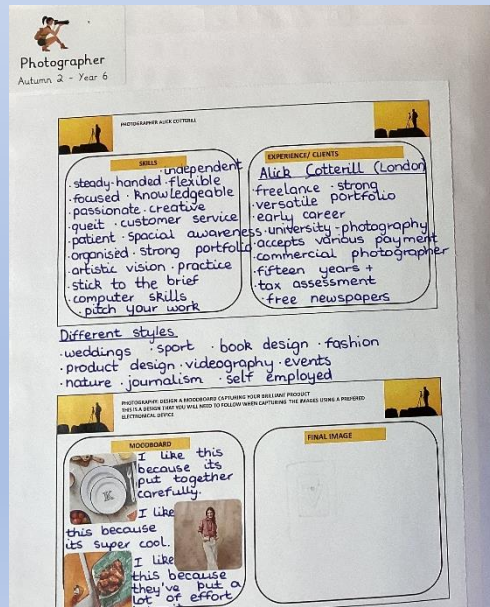 Photographer
Autumn 2 - Year 6
PHOTOGRAPHER ALICK COTTERILL
SKILLS
· independent
· steady-handed · flexible
· focused · knowledgeable
· passionate · creative
· queit · customer service
· patient · spacial awareness
· organised · strong portfolio
· artistic vision · practice
· stick to the brief
· computer skills
· pitch your work
EXPERIENCE/ CLIENTS
Alick Cotterill (London)
· freelance · strong
· versatile portfolio
· early career
· university - photography
· accepts various payment
· commercial photographer
· fifteen years +
· tax assessment
· free newspapers
Different styles
· weddings · sport · book design · fashion
· product design · videography · events
· nature · journalism · self employed
PHOTOGRAPHY: DESIGN A MOODBOARD CAPTURING YOUR BRILLIANT PRODUCT
THIS IS A DESIGN THAT YOU WILL NEED TO FOLLOW WHEN CAPTURING THE IMAGES USING A PREFERED
ELECTRONICAL DEVICE
MOODBOARD
I like this
because its
put together
carefully.
I like
this because
its super cool.
I like
this because
they've put a
lot of effort
FINAL IMAGE